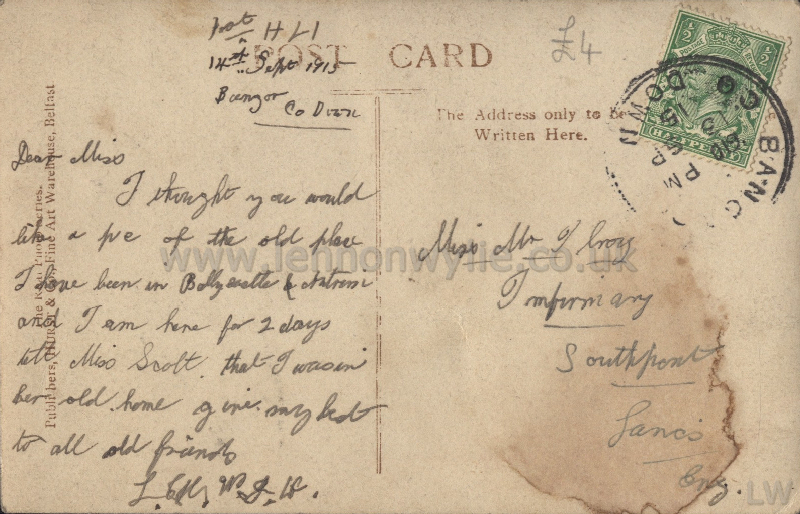 Post HLI
14th Sept 1915
Bangor
Co Down
POST CARD
£4
The Address only to be
Written Here.
½ ½
HALFPENNY
BANG
CO DOWN
PM
15
Dear Miss
I thought you would
like a pic of the old place
I have been in Ballycastle & Antrim
and I am here for 2 days
tell Miss Scott that I was in
her old home give my best
to all old friends
Miss
Infirmary
Southport
Lancs
Eng.
Publishers, HURST & Co., Fine Art Warehouse, Belfast
www.lennonwylie.co.uk
LW